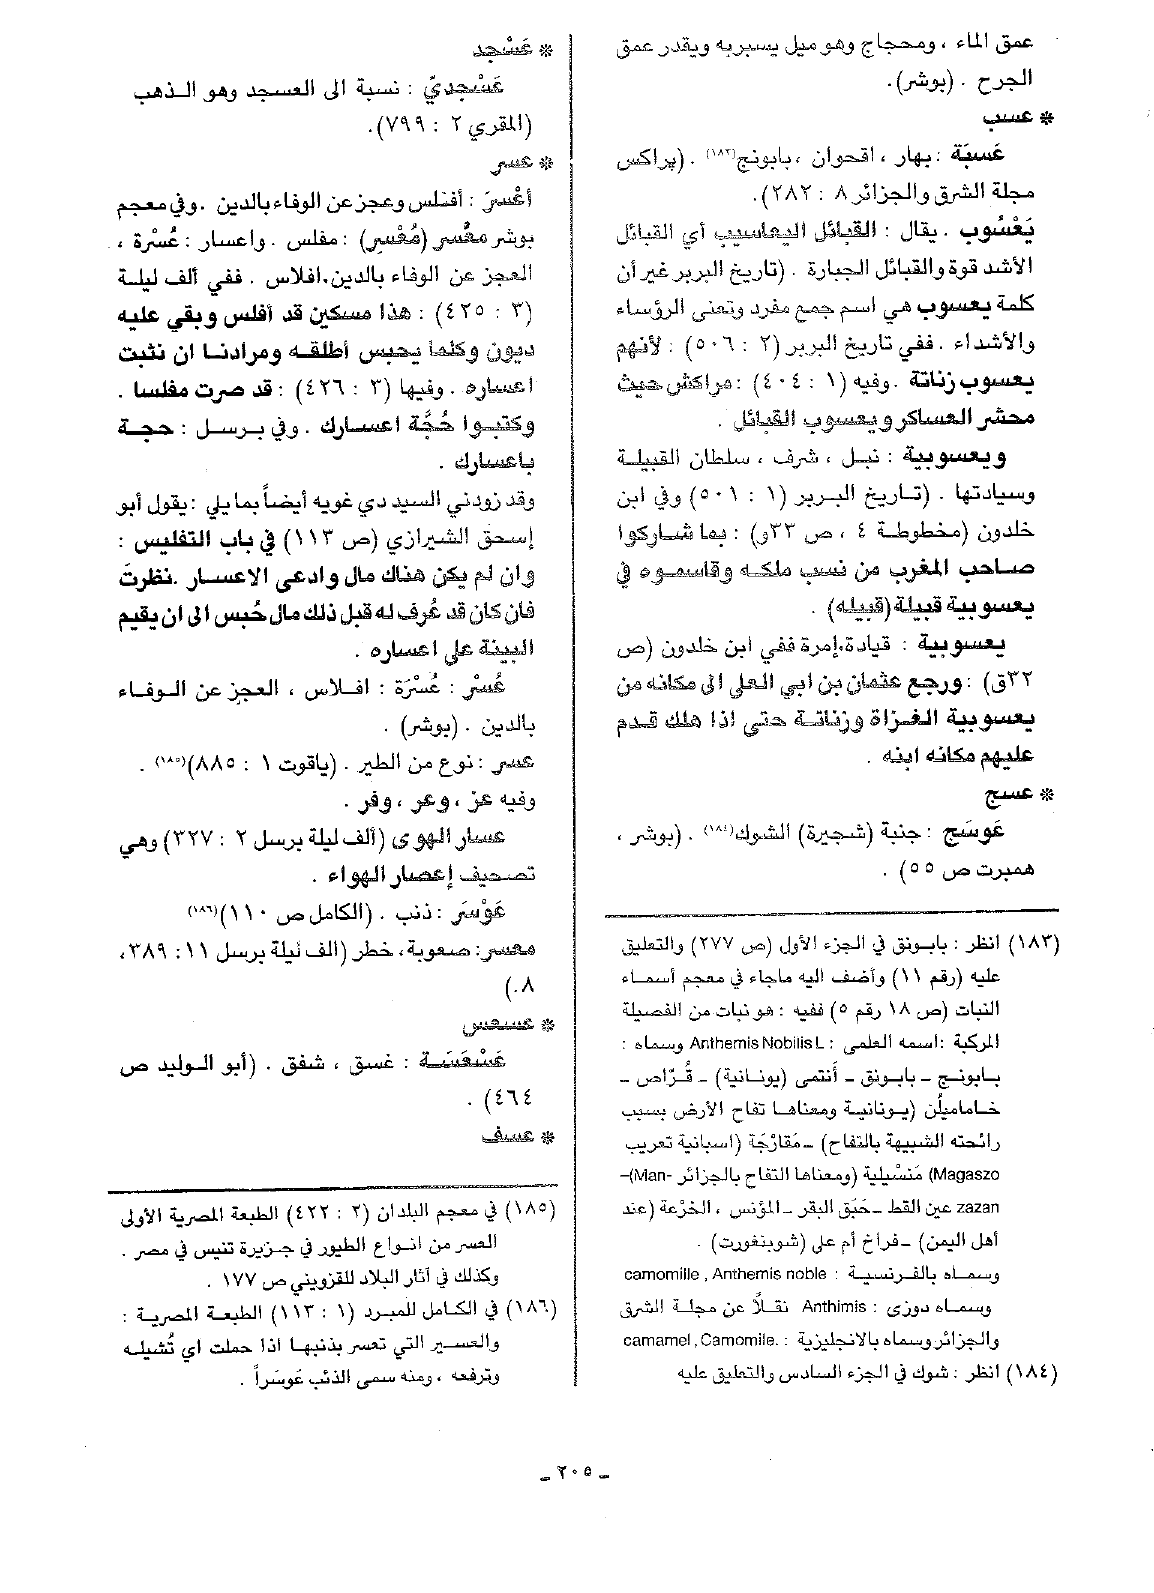 عمق الماء ، ومحجاج وهو ميل يسبربه ويقدر عمق
الجرح . (بوشر).
* عسب
عَسبَة : بهار ، اقحوان ، بابونج(١٨٣) . (پراكس
مجلة الشرق والجزائر ٨ : ٢٨٢).
يَعْسُوب . يقال : القبائل اليعاسيب أي القبائل
الأشد قوة والقبائل الجبارة . (تاريخ البربر غير أن
كلمة يعسوب هي اسم جمع مفرد وتعنى الرؤساء
والأشداء . ففي تاريخ البربر (٢ : ٥٠٦) : لأنهم
يعسوب زناتة . وفيه (١ : ٤٠٤) : مراكش حيث
محشر العساكر ويعسوب القبائل .
ويعسوبية : نبل ، شرف ، سلطان القبيلة
وسيادتها . (تاريخ البربر (١ : ٥٠١) وفي ابن
خلدون (مخطوطة ٤ ، ص ٣٣و) : بما شاركوا
صاحب المغرب من نسب ملكه وقاسموه في
يعسوبية قبيلة (قبيله) .
يعسوبية : قيادة، إمرة ففي ابن خلدون (ص
٣٢ق) : ورجع عثمان بن ابي العلي الى مكانه من
يعسوبية الغزاة وزناتة حتى اذا هلك قدم
عليهم مكانه ابنه .
* عسج
عَوسَج : جنبة (شجيرة) الشوك(١٨٤) . (بوشر ،
همبرت ص ٥٥) .
(١٨٣) انظر : بابونق في الجزء الأول (ص ٢٧٧) والتعليق
عليه (رقم ١١) وأضف اليه ماجاء في معجم أسماء
النبات (ص ١٨ رقم ٥) ففيه : هو نبات من الفصيلة
المركبة : اسمه العلمي : Anthemis Nobilis L وسماه :
بابونج - بابونق - أنتمى (يونانية) - قُرّاص -
خاماميلُن (يونانية ومعناها تفاح الأرض بسبب
رائحته الشبيهة بالتفاح) - مَقارْجَة (اسبانية تعريب
Magaszo) مَنسْيلية (ومعناها التفاح بالجزائر Man-)-
zazan عين القط - حَبَق البقر - المؤنس ، الخزعة (عند
أهل اليمن) - فراخ أم علي (شوينفورت) .
وسماه بالفرنسية : camomille , Anthemis noble
وسماه دوزى : Anthimis نقلاً عن مجلة الشرق
والجزائر وسماه بالانجليزية : .camamel , Camomile
(١٨٤) انظر : شوك في الجزء السادس والتعليق عليه
* عَسْجد
عَسْجديّ : نسبة الى العسجد وهو الذهب
(المقري ٢ : ٧٩٩).
* عسر
أعْسرَ : أفلس وعجز عن الوفاء بالدين . وفي معجم
بوشر معْسر (مُعْسِر) : مفلس . واعسار : عُسْرة ،
العجز عن الوفاء بالدين، افلاس . ففي ألف ليلة
(٣ : ٤٢٥) : هذا مسكين قد أفلس وبقي عليه
ديون وكلما يحبس أطلقه ومرادنا ان نثبت
اعساره . وفيها (٣ : ٤٢٦) : قد صرت مفلسا .
وكتبوا حُجَّة اعسارك . وفي برسل : حجة
باعسارك .
وقد زودني السيد دي غويه أيضاً بمايلي : يقول أبو
إسحق الشيرازي (ص ١١٣) في باب التفليس :
وان لم يكن هناك مال وادعى الاعسار . نظرتَ
فان كان قد عُرف له قبل ذلك مال حُبس الى ان يقيم
البينة على اعساره .
عُسْر : عُسْرَة : افلاس ، العجز عن الوفاء
بالدين . (بوشر) .
عسر : نوع من الطير . (ياقوت ١ : ٨٨٥)(١٨٥) .
وفيه عز ، وعر ، وفر .
عسار الهوى (ألف ليلة برسل ٢ : ٣٢٧) وهي
تصحيف إعصار الهواء .
عَوْسَر : ذنب . (الكامل ص ١١٠)(١٨٦)
معسر : صعوبة، خطر (الف ليلة برسل ١١ : ٣٨٩،
٨.)
* عسعس
عَسْعَسَة : غسق ، شفق . (أبو الوليد ص
٤٦٤) .
* عسف
(١٨٥) في معجم البلدان (٢ : ٤٢٢) الطبعة المصرية الأولى
العسر من انواع الطيور في جزيرة تنيس في مصر .
وكذلك في آثار البلاد للقزويني ص ١٧٧ .
(١٨٦) في الكامل للمبرد (١ : ١١٣) الطبعة المصرية :
والعسير التي تعسر بذنبها اذا حملت اي تُشيله
وترفعه ، ومنه سمى الذئب عَوسَراً .
- ٢٠٥ -